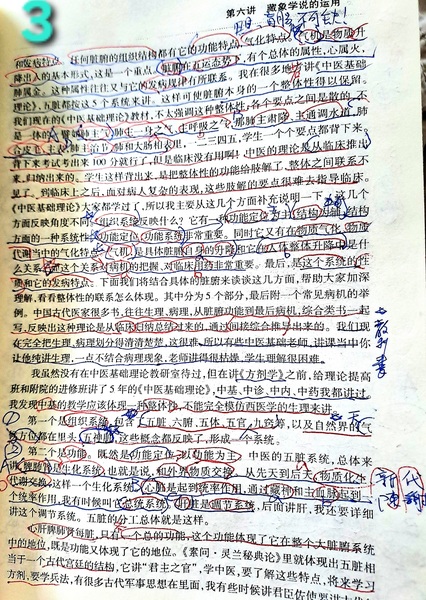 3
第六讲 藏象学说的运用
和发病特点。任何脏腑的组织结构都有它的功能特点,气化特点。气机是物质升
降出入的基本形式,这是一个重点。脏腑在五运态势下,有个总体的属性,心属火,
肺属金。这种属性往往又与它的发病规律有所联系。我在很多地方讲《中医基础
理论》,五脏都按这5个系统来讲。这样可使脏腑本身的一个整体性得以保留。
我们现在的《中医基础理论》教材,不太强调这种整体性,各个要点之间是散的,不
是一体的。譬如肺主气,肺主一身之气,主呼吸之气,那肺主肃降,主通调水道,肺
合皮毛,主表,肺主治节,肺和大肠相表里,一二三四五,学生一个个要点都背下来。
背下来考试考出来100分就行了,但是临床没有用啊!中医的理论是从临床推出
来,归纳出来的。学生这样背出来,是把整体性的功能给肢解了,整体之间联系不
见了。到临床之后,面对病人复杂的表现,这些肢解的要点很难去指导临床。
《中医基础理论》大家都学过了,所以我主要从这几个方面补充说明一下。这几个
方面反映角度不同,组织系统反映什么?它有一功能定位为主,结构为辅,结构
方面的一种系统性,功能定位,功能系统非常重要。同时它又有在物质气化、物质
代谢当中的气化特点。气机是具体脏腑自身的升降和它的在人体整体升降中是什
么关系,而这个关系对病机的把握,对临床用药非常重要。最后,是这个系统的性
质和它的发病特点。下面我们将结合具体的脏腑来谈谈这几方面,帮助大家加深
理解,看看整体性的联系怎么体现。其中分为5个部分,最后附一个常见病机的举
例。中国古代医家很多书,往往生理、病理,从脏腑功能到最后病机,综合类书一起
写,反映出这种理论是从临床归纳总结过来的,通过间接综合推导出来的。我们现
在完全把生理、病理划分得清清楚楚,这很难,所以有些中医基础老师,讲课当中你
让他纯讲生理,一点不结合病理现象,老师讲得很枯燥,学生理解很困难。
我虽然没有在中医基础理论教研室待过,但在讲《方剂学》之前,给理论提高
班和附院的进修班讲了5年的《中医基础理论》,中基、中诊、中内、中药我都讲过。
我发现中基的教学应该体现一种整体性,不能完全模仿西医学的生理来讲。
第一个是组织系统,包含了五脏、六腑、五体、五官、九窍等,以及自然界的气
与方位都在里头,五神脏,这些概念都反映了,形成一个系统。
第二个是功能。既然是功能定位,以功能为主,中医的五脏系统,总体来
讲,脾肺肾是生化系统,也就是说,和外界物质交换,从先天到后天,物质化生
代谢交换,这样一个生化系统。心脏是起到统率作用,通过藏神和主血脉起到一
个统率作用,我有时候叫它总统系统。肝脏是调节系统,后面讲肝,我还要详细
讲这个调节系统。五脏的分工总体就是这样。
心肝脾肺肾每脏,只有一个总的功能,这个功能体现了它在整个大脏腑系统
中的地位,既是功能又体现了它的地位。《素问·灵兰秘典论》里就体现出五脏相
当于一个古代宫廷的结构,它讲“君主之官”,学中医,要了解这些特点,将来学习
方剂,要学兵法,有很多古代军事思想在里面,我有些时候讲君臣佐使要讲
教科书
①
②
新陈代谢